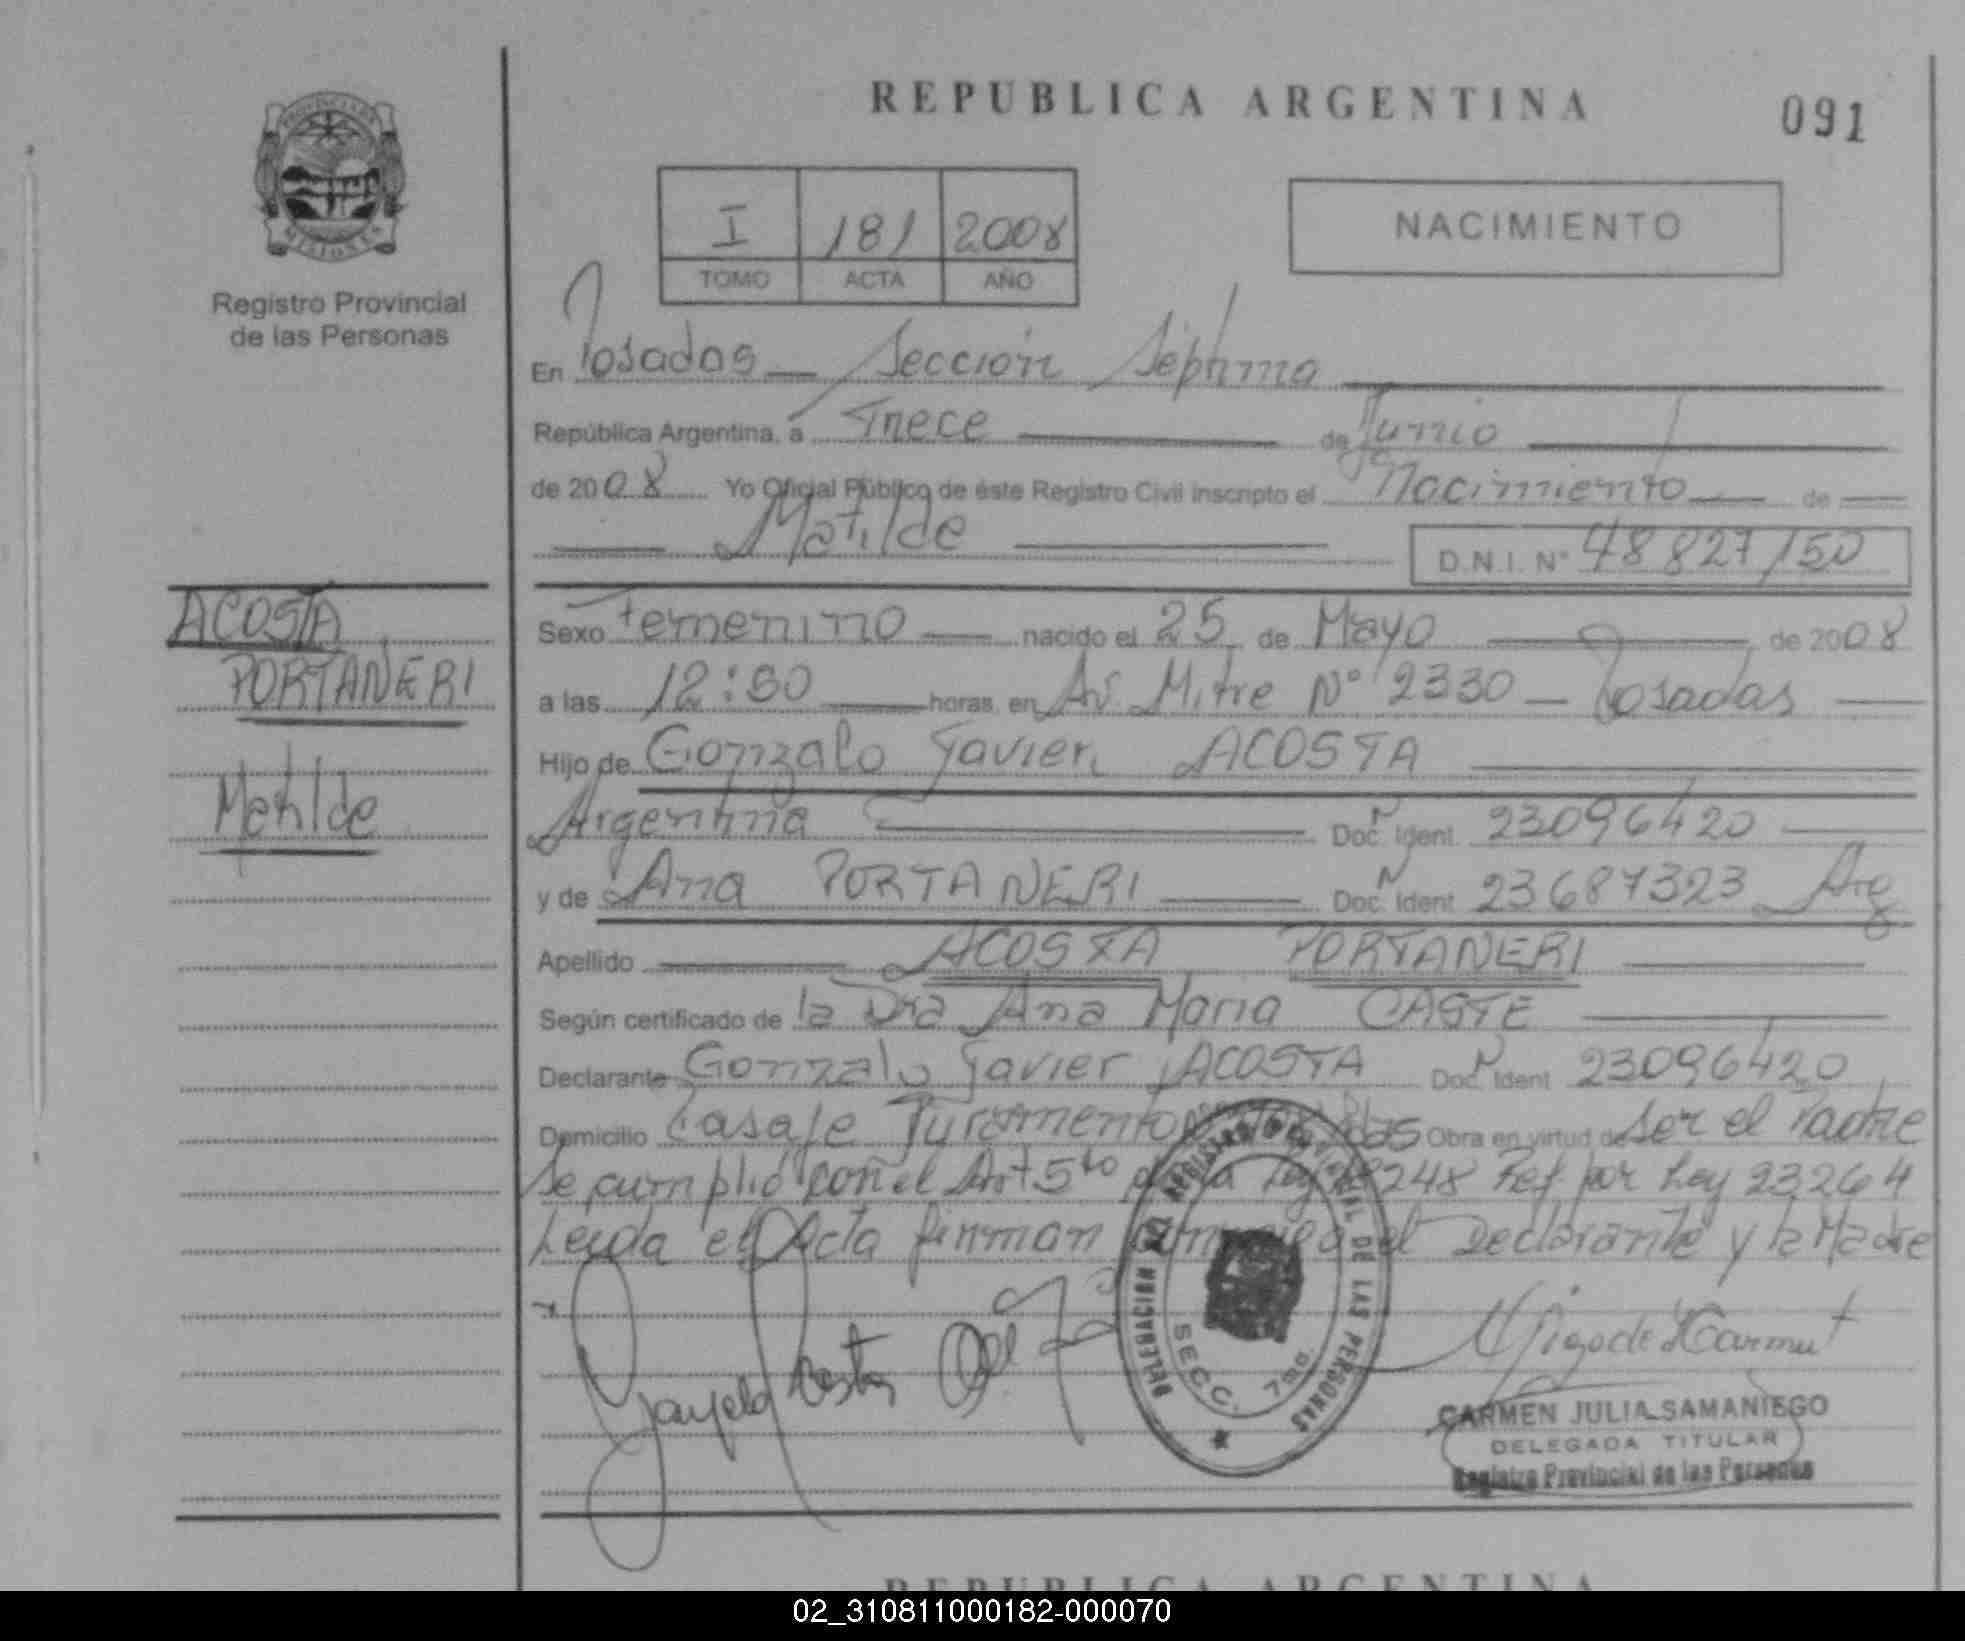 REPUBLICA ARGENTINA
091
PROVINCIA DE
MISIONES
Registro Provincial
de las Personas
I 181 2008
TOMO ACTA AÑO
NACIMIENTO
En Posadas Sección Séptima
República Argentina, a Trece de Junio
de 2008 Yo Oficial Público de éste Registro Civil inscripto el Nacimiento de
Matilde D.N.I. N° 48827150
ACOSTA
PORTANERI
Matilde
Sexo Femenino nacido el 25 de Mayo de 2008
a las 12:50 horas, en Av. Mitre N° 2330 - Posadas
Hijo de Gonzalo Javier ACOSTA
Argentina Doc. Ident. 23096420
y de Ana PORTANERI Doc. Ident 23687323 Arg
Apellido ACOSTA PORTANERI
Según certificado de la Dra Ana Maria CASTE
Declarante Gonzalo Javier ACOSTA Doc. Ident 23096420
Domicilio Pasaje Juramento Obra en virtud de Ser el Padre
Se cumplió con el Art 5to de la Ley 18248 Ref. por Ley 23264
Leída el Acta firman conmigo el Declarante y la Madre
DELEGACION DEL REGISTRO PROVINCIAL DE LAS PERSONAS
SECC. 7ma.
CARMEN JULIA SAMANIEGO
DELEGADA TITULAR
Registro Provincial de las Personas
REPUBLICA ARGENTINA
02_310811000182-000070